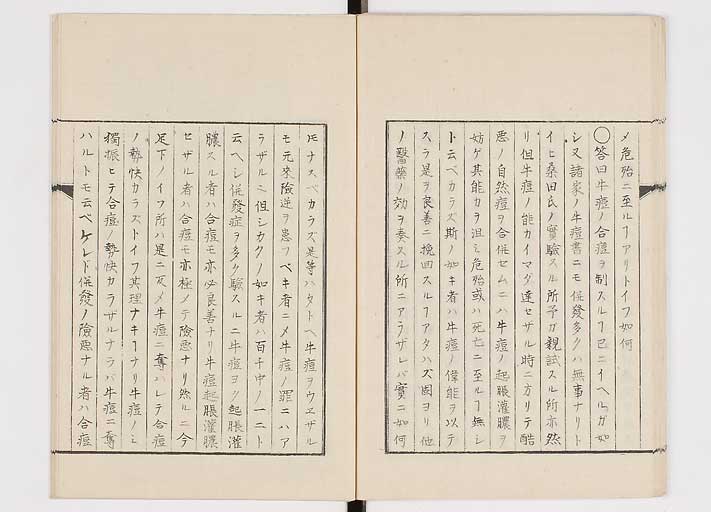 メ危殆ニ至ルヿアリトイフ如何
○答曰牛痘ノ合痘ヲ制スルヿ已ニイヘルガ如
シ又諸家ノ牛痘書ニモ併發多クハ無事ナリト
イヒ桑田氏ノ實驗スル所予ガ親試スル所亦然
リ但牛痘ノ能力イマダ達セザル時ニ方リテ酷
悪ノ自然痘ヲ合併セムニハ牛痘ノ起脹灌膿ヲ
妨ゲ其能力ヲ沮シ危殆或ハ死亡ニ至ルヿ無シ
ト云ベカラズ斯ノ如キ者ハ牛痘ノ偉能ヲ以テ
スラ是ヲ良善ニ挽回スルヿアタハズ固ヨリ他
ノ醫藥ノ効ヲ奏スル所ニアラザレバ實ニ如何
𪜈ナスベカラズ是等ハタトヘ牛痘ヲウヱザル
モ元来險逆ヲ患フベキ者ニメ牛痘ノ罪ニハア
ラザルニ但シカクノ如キ者ハ百千中ノ一ニト
云ヘシ併發症ヲ多ク驗スルニ牛痘ヨク起脹灌
膿スル者ハ合痘モ亦必良善ナリ牛痘起脹灌膿
セザル者ハ合痘モ亦極メテ險悪ナリ然ルニ今
足下ノイフ所ハ是ニ反メ牛痘ニ奪ハレテ合痘
ノ勢快カラズトイフ其理ナキヿナリ牛痘ノミ
獨振ヒテ合痘ノ勢快カラザルナラバ牛痘ニ奪
ハルトモ云ベケレド併發ノ險悪ナル者ハ合痘